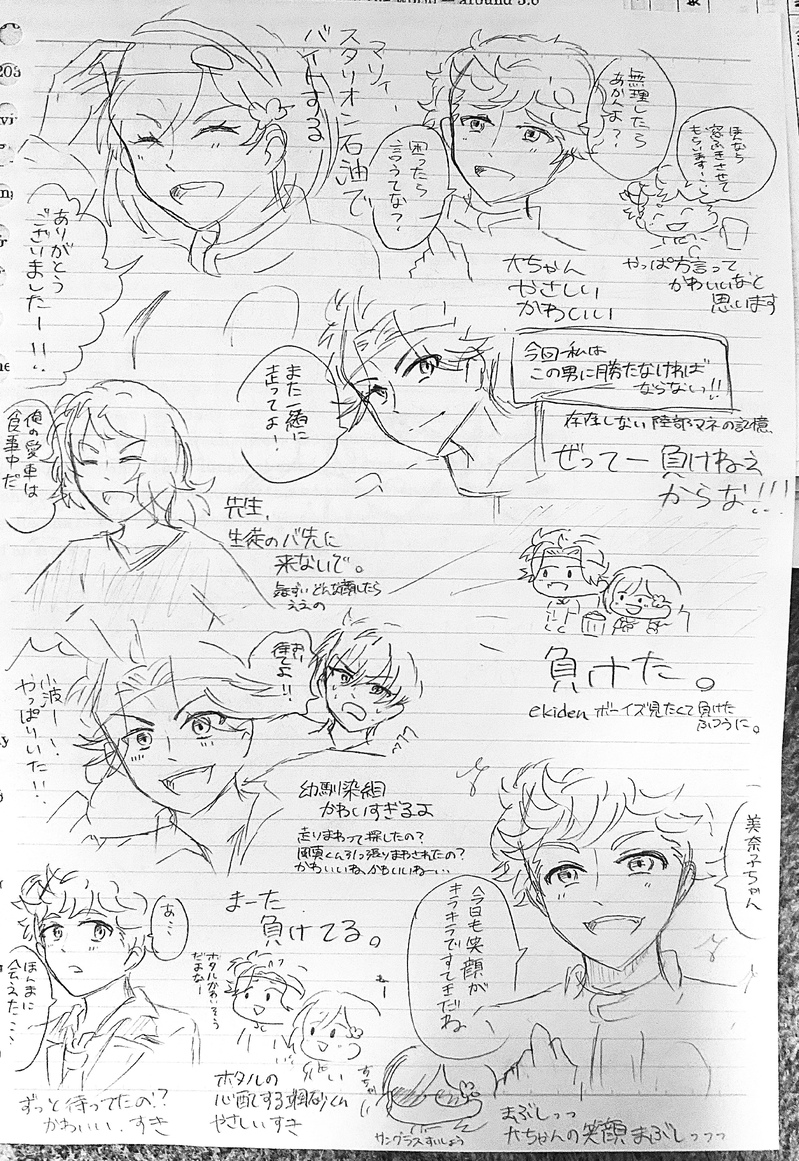 マリィ、
スタリオン石油で
バイトする
無理したら
あかんよ?
困ったら
言うてな?
ほなら
窓ふきさせて
もらいます…
大ちゃん
やさしい
かわいい
やっぱ方言って
かわいいなと
思います
ありがとう
ございましたー!!
また一緒に
走ってよー!
今回、私は
この男に勝たなければ
ならない!!
存在しない陸部マネの記憶
ぜってー負けねえ
からな!!!
俺の愛車は
食事中だ
先生、
生徒のバ先に
来ないで。
負けた。
ekidenボーイズ見たくて負けた
ふつうに。
小波ー!
やっぱりいた!!
待てよ!!
幼馴染組
かわいすぎるよ
走りまわって探したの?
風真くん引っ張りまわされたの?
かわいいね、かわいいねー…
美奈子ちゃん
今日も笑顔が
キラキラですてきだね
あ…
ほんまに
会えた…
ずっと待ってたの?
かわいい、すき
まーた
負けてる。
ホタルかわいそう
だよなー
ホタルの
心配する颯砂くん
やさしいすき
サングラスすいしょう
まぶしっっ
大ちゃんの笑顔まぶしっっっ